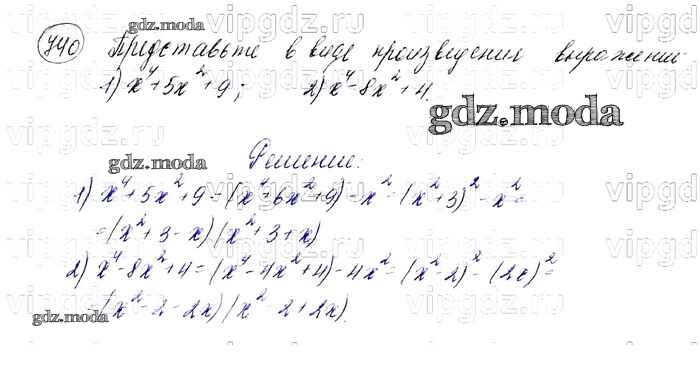 740 Представьте в виде произведения выражений
1) x⁴+5x²+9; 2) x⁴-8x²+4.
gdz.moda
Решение:
1) x⁴+5x²+9=(x⁴+6x²+9)-x²=(x²+3)²-x²=
=(x²+3-x)(x²+3+x)
2) x⁴-8x²+4=(x⁴-4x²+4)-4x²=(x²-2)²-(2x)²=
=(x²-2-2x)(x²-2+2x).
gdz.moda